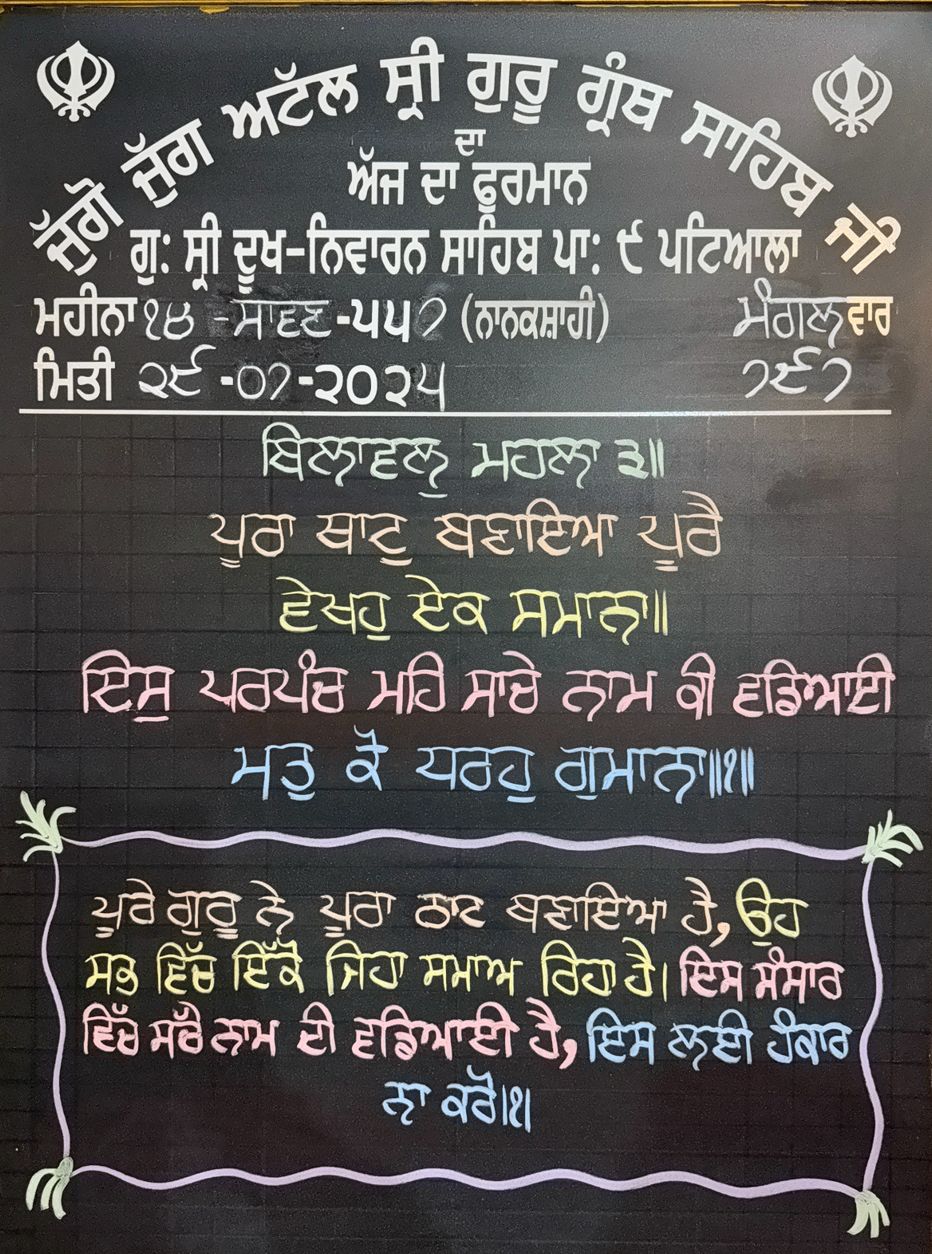 ਜੁੱਗੋ ਜੁੱਗ ਅਟੱਲ ਸ੍ਰੀ ਗੁਰੂ ਗ੍ਰੰਥ ਸਾਹਿਬ ਜੀ
ਦਾ
ਅੱਜ ਦਾ ਫੁਰਮਾਨ
ਗੁ: ਸ੍ਰੀ ਦੂਖ-ਨਿਵਾਰਨ ਸਾਹਿਬ ਪਾ: ੯ ਪਟਿਆਲਾ
ਮਹੀਨਾ ੧੪ - ਸਾਵਣ -੫੫੭ (ਨਾਨਕਸ਼ਾਹੀ) ਮੰਗਲਵਾਰ
ਮਿਤੀ ੨੯ -੦੭-੨੦੨੫ ੭੯੭
ਬਿਲਾਵਲੁ ਮਹਲਾ ੩॥
ਪੂਰਾ ਥਾਟੁ ਬਣਾਇਆ ਪੂਰੈ
ਵੇਖਹੁ ਏਕ ਸਮਾਨਾ॥
ਇਸੁ ਪਰਪੰਚ ਮਹਿ ਸਾਚੇ ਨਾਮ ਕੀ ਵਡਿਆਈ
ਮਤੁ ਕੋ ਧਰਹੁ ਗੁਮਾਨਾ॥੧॥
ਪੂਰੇ ਗੁਰੂ ਨੇ ਪੂਰਾ ਠਾਟ ਬਣਾਇਆ ਹੈ, ਉਹ
ਸਭ ਵਿੱਚ ਇੱਕੋ ਜਿਹਾ ਸਮਾਅ ਰਿਹਾ ਹੈ। ਇਸ ਸੰਸਾਰ
ਵਿੱਚ ਸੱਚੇ ਨਾਮ ਦੀ ਵਡਿਆਈ ਹੈ, ਇਸ ਲਈ ਹੰਕਾਰ
ਨਾ ਕਰੋ।੧।